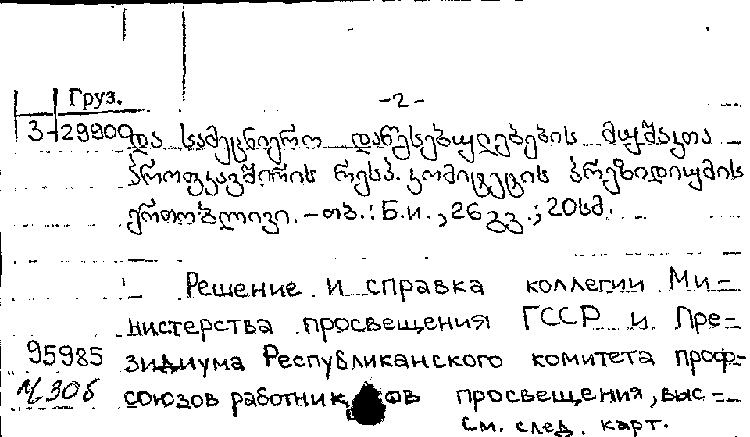 Груз.
-2-
3-29900
და სამეცნიერო დაწესებულებების მუშაკთა
პროფკავშირის რესპ. კომიტეტის პრეზიდიუმის
ერთობლივი. – თბ. : Б.и., 26 გვ.; 20 სმ.
Решение и справка коллегии Ми=
нистерства просвещения ГССР и Пре=
95985
зидиума Республиканского комитета проф=
М306
союзов работников просвещения, выс=
См. след. карт.